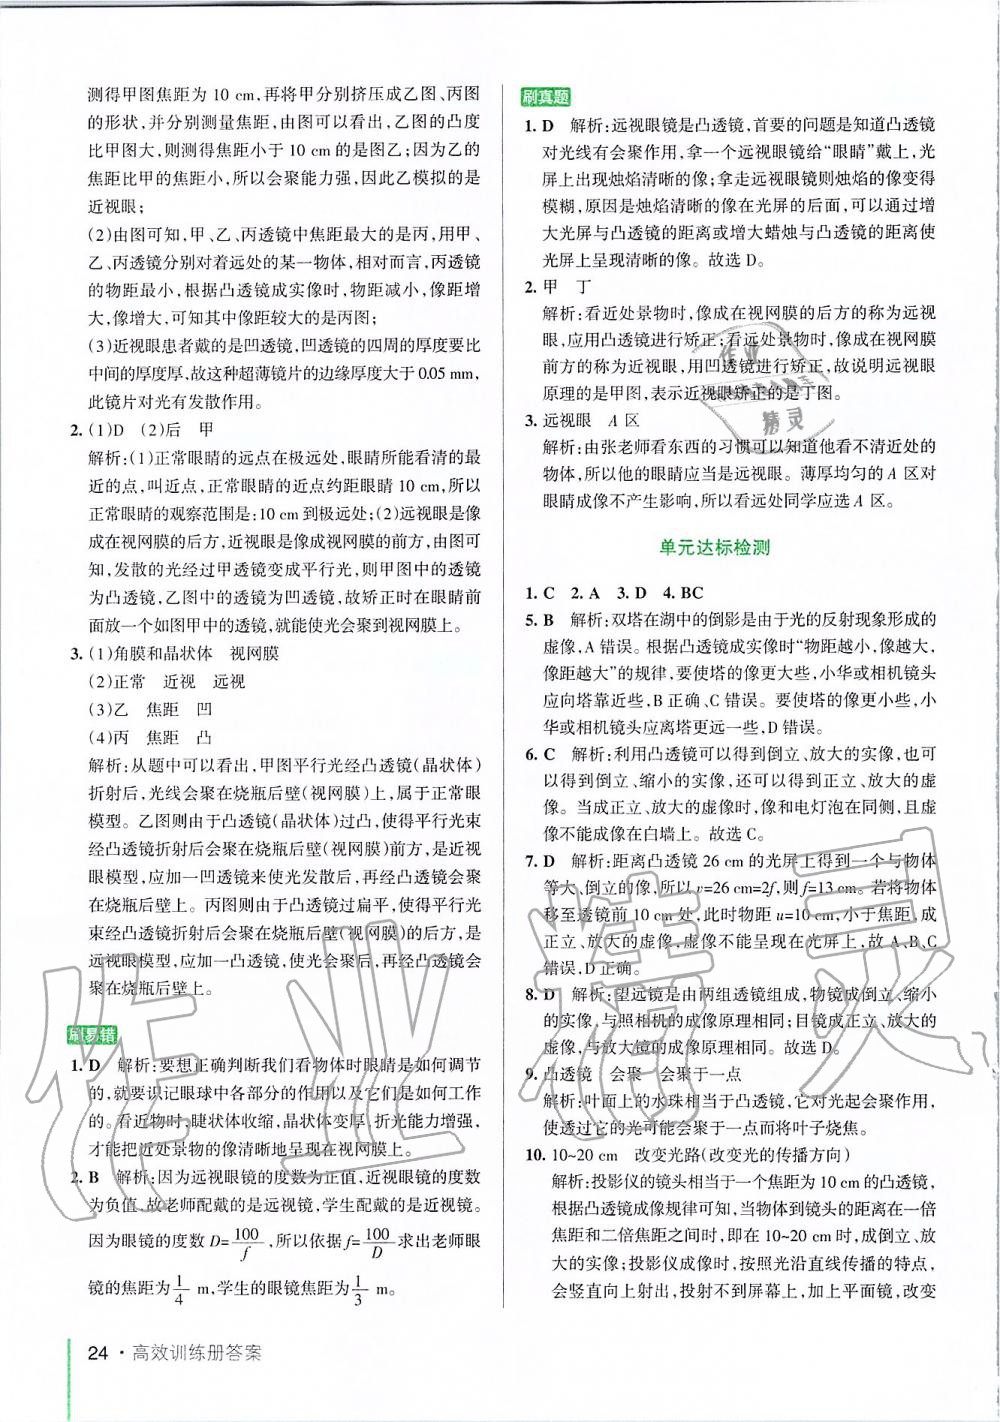 测得甲图焦距为 10 cm,再将甲分别挤压成乙图、丙图
的形状,并分别测量焦距,由图可以看出,乙图的凸度
比甲图大,则测得焦距小于 10 cm 的是图乙;因为乙的
焦距比甲的焦距小,所以会聚能力强,因此乙模拟的是
近视眼;
(2)由图可知,甲、乙、丙透镜中焦距最大的是丙,用甲、
乙、丙透镜分别对着远处的某一物体,相对而言,丙透镜
的物距最小,根据凸透镜成实像时,物距减小,像距增
大,像增大,可知其中像距较大的是丙图;
(3)近视眼患者戴的是凹透镜,凹透镜的四周的厚度要比
中间的厚度厚,故这种超薄镜片的边缘厚度大于 0.05 mm,
此镜片对光有发散作用。
2. (1)D (2)后 甲
解析:(1)正常眼睛的远点在极远处,眼睛所能看清的最
近的点,叫近点,正常眼睛的近点约距眼睛 10 cm,所以
正常眼睛的观察范围是:10 cm到极远处;(2)远视眼是像
成在视网膜的后方,近视眼是像成视网膜的前方,由图可
知,发散的光经过甲透镜变成平行光,则甲图中的透镜
为凸透镜,乙图中的透镜为凹透镜,故矫正时在眼睛前
面放一个如图甲中的透镜,就能使光会聚到视网膜上。
3. (1)角膜和晶状体 视网膜
(2)正常 近视 远视
(3)乙 焦距 凹
(4)丙 焦距 凸
解析:从题中可以看出,甲图平行光经凸透镜(晶状体)
折射后,光线会聚在烧瓶后壁(视网膜)上,属于正常眼
模型。乙图则由于凸透镜(晶状体)过凸,使得平行光束
经凸透镜折射后会聚在烧瓶后壁(视网膜)前方,是近视
眼模型,应加一凹透镜来使光发散后,再经凸透镜会聚
在烧瓶后壁上。丙图则由于凸透镜过扁平,使得平行光
束经凸透镜折射后会聚在烧瓶后壁(视网膜)的后方,是
远视眼模型,应加一凸透镜,使光会聚后,再经凸透镜会
聚在烧瓶后壁上。
刷易错
1. D 解析:要想正确判断我们看物体时眼睛是如何调节
的,就要识记眼球中各部分的作用以及它们是如何工作
的。看近物时,睫状体收缩,晶状体变厚,折光能力增强,
才能把近处景物的像清晰地呈现在视网膜上。
2. B 解析:因为远视眼镜的度数为正值,近视眼镜的度数
为负值,故老师配戴的是远视镜,学生配戴的是近视镜。
因为眼镜的度数 D=100/f,所以依据 f=100/D 求出老师眼
镜的焦距为 1/4 m,学生的眼镜焦距为 1/3 m。
24·高效训练册答案
刷真题
1. D 解析:远视眼镜是凸透镜,首要的问题是知道凸透镜
对光线有会聚作用,拿一个远视眼镜给“眼睛”戴上,光
屏上出现烛焰清晰的像;拿走远视眼镜则烛焰的像变得
模糊,原因是烛焰清晰的像在光屏的后面,可以通过增
大光屏与凸透镜的距离或增大蜡烛与凸透镜的距离使
光屏上呈现清晰的像。故选 D。
2. 甲 丁
解析:看近处景物时,像成在视网膜的后方的称为远视
眼,应用凸透镜进行矫正;看远处景物时,像成在视网膜
前方的称为近视眼,用凹透镜进行矫正,故说明远视眼
原理的是甲图,表示近视眼矫正的是丁图。
3. 远视眼 A 区
解析:由张老师看东西的习惯可以知道他看不清近处的
物体,所以他的眼睛应当是远视眼。薄厚均匀的 A 区对
眼睛成像不产生影响,所以看远处同学应选 A 区。
单元达标检测
1. C 2. A 3. D 4. BC
5. B 解析:双塔在湖中的倒影是由于光的反射现象形成的
虚像,A 错误。根据凸透镜成实像时“物距越小,像越大,
像距越大”的规律,要使塔的像更大些,小华或相机镜头
应向塔靠近些,B 正确、C 错误。要使塔的像更小些,小
华或相机镜头应离塔更远一些,D 错误。
6. C 解析:利用凸透镜可以得到倒立、放大的实像,也可
以得到倒立、缩小的实像,还可以得到正立、放大的虚
像。当成正立、放大的虚像时,像和电灯泡在同侧,且虚
像不能成像在白墙上。故选 C。
7. D 解析:距离凸透镜 26 cm 的光屏上得到一个与物体
等大、倒立的像,所以 v=26 cm=2f,则 f=13 cm。若将物体
移至透镜前 10 cm 处,此时物距 u=10 cm,小于焦距,成
正立、放大的虚像,虚像不能呈现在光屏上,故 A、B、C
错误,D 正确。
8. D 解析:望远镜是由两组透镜组成,物镜成倒立、缩小
的实像,与照相机的成像原理相同;目镜成正立、放大的
虚像,与放大镜的成像原理相同。故选 D。
9. 凸透镜 会聚 会聚于一点
解析:叶面上的水珠相当于凸透镜,它对光起会聚作用,
透过它的光可能会聚于一点而将叶子烧焦。
10. 10~20 cm 改变光路(改变光的传播方向)
解析:投影仪的镜头相当于一个焦距为 10 cm 的凸透镜,
根据凸透镜成像规律可知,当物体到镜头的距离在一倍
焦距和二倍焦距之间时,即在 10~20 cm 时,成倒立、放
大的实像;投影仪成像时,按照光沿直线传播的特点,
会竖直向上射出,投射不到屏幕上,加上平面镜,改变
作业精灵
作业
精灵